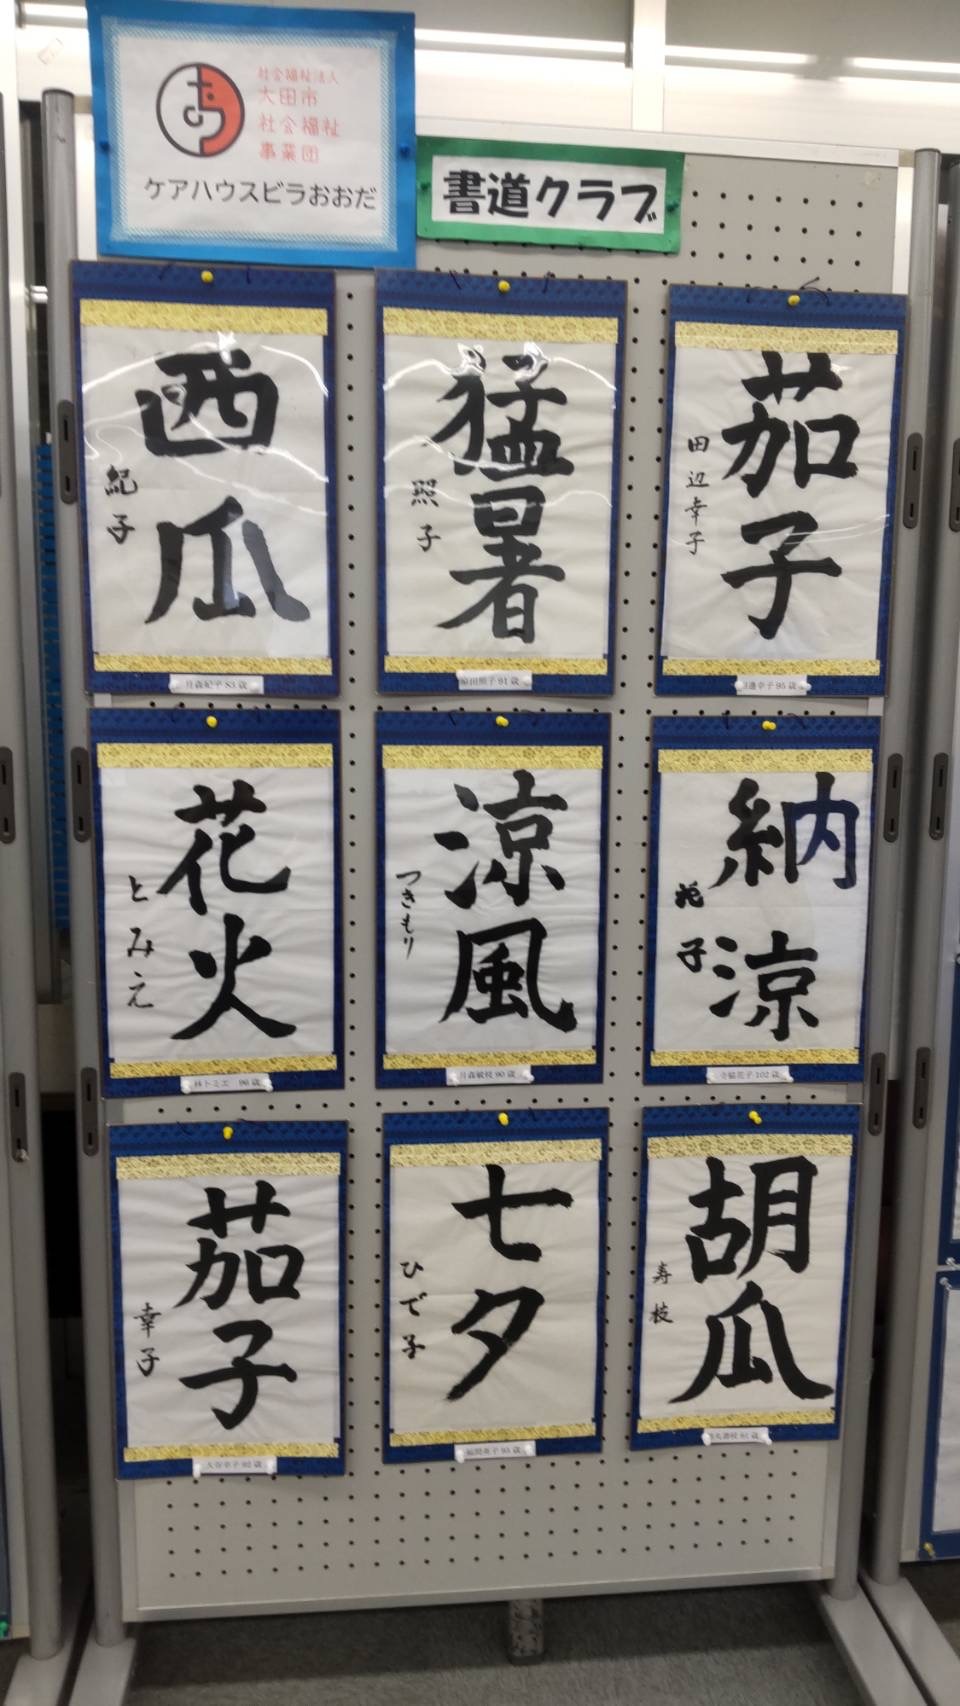 社会福祉法人
大田市
社会福祉
事業団
ケアハウスビラおおだ
書道クラブ
西瓜
紀子
月森紀子 83歳
猛暑
照子
原田照子 91歳
茄子
田辺幸子
幸子 95歳
花火
とみえ
林トミエ 96歳
涼風
つきもり
月森敏枝 90歳
納涼
花子
寺脇花子 102歳
茄子
幸子
大谷幸子 92歳
七夕
ひで子
英子 93歳
胡瓜
寿枝
寿枝 81歳